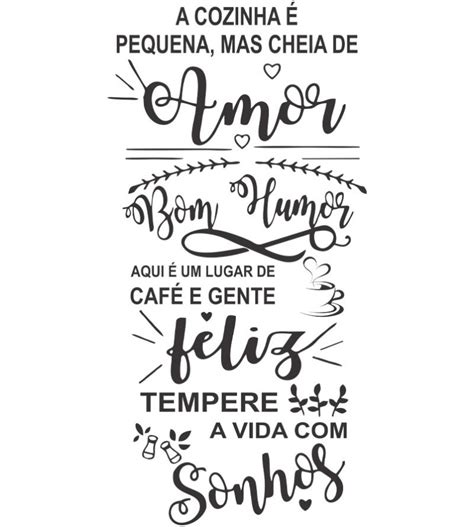 A COZINHA É
PEQUENA, MAS CHEIA DE
Amor
Bom Humor
AQUI É UM LUGAR DE
CAFÉ E GENTE
feliz
TEMPERE
A VIDA COM
Sonhos